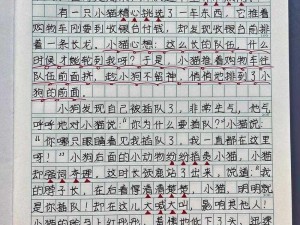 有一只小猫精心挑选了一车东西，它推着
购物车刚要到收银台付钱，却发现收银台前排
着一条长龙。小猫心想：这么长的队伍，什么
时候才能轮到我呀？于是，小猫推着购物车往
队伍前面挤，趁小狗不留神，悄悄地排到了小
狗的前面。
小狗发现自己被插队了，非常生气，他气
呼呼地对小猫说：“你为什么要插队？”小猫说：
“你哪只眼睛看见我插队了，我一直都在这里
呀！”小狗后面的小动物纷纷指责小猫，小猫
却强词夺理，这时长颈鹿站了出来，说道：“我
的脖子长，在后面看得清清楚楚，小猫，明明就
是你插队！却在这儿大喊大叫，影响其他人！
小猫的脸马上红彤彤，低下了头，迅速